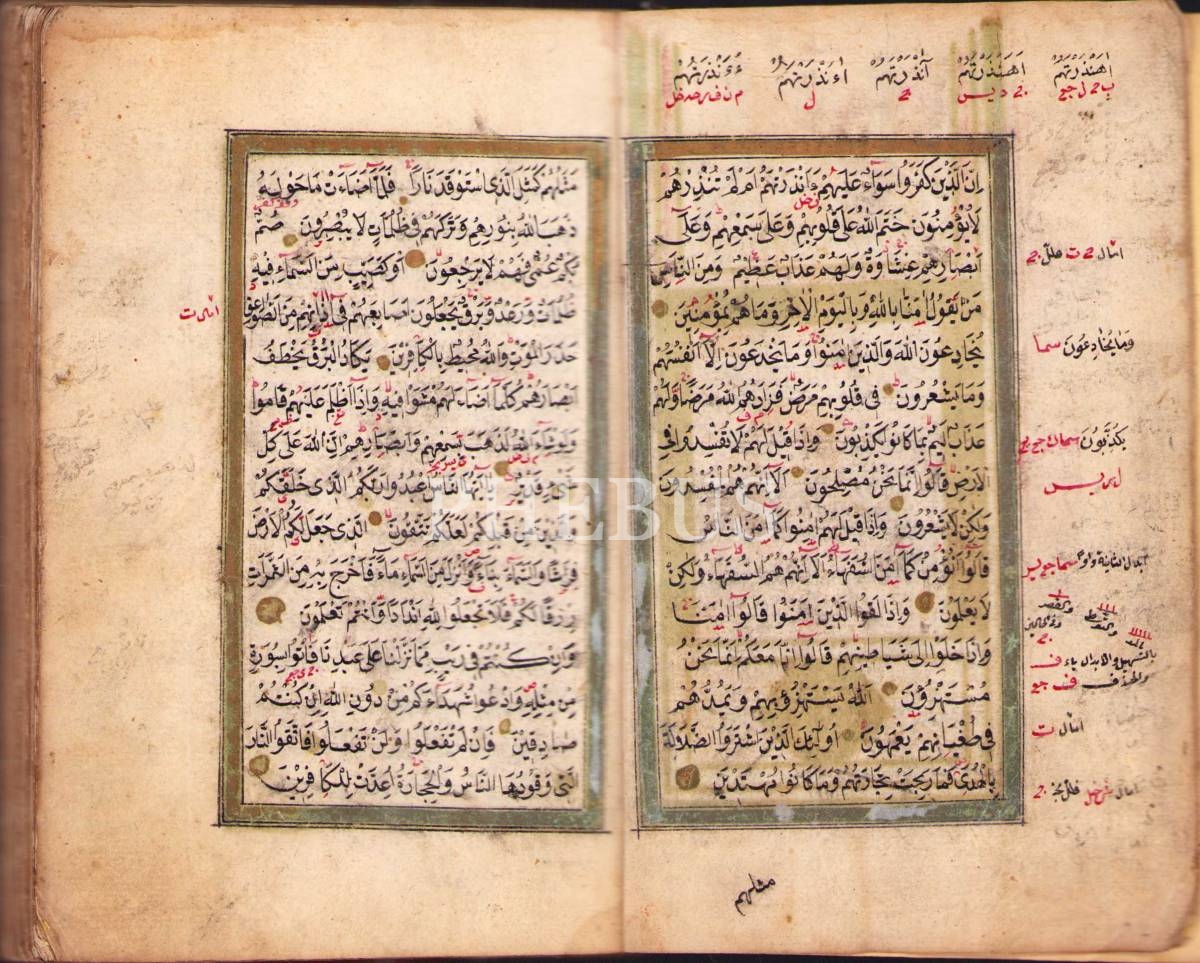 ءَاَنْذَرْتَهُمْ
اءَنْذَرْتَهُمْ
آنْذَرْتَهُمْ
اَهَنْذَرْتَهُمْ
اِنَّ الَّذِينَ كَفَرُوا سَوَاءٌ عَلَيْهِمْ ءَاَنْذَرْتَهُمْ اَمْ لَمْ تُنْذِرْهُمْ
لَا يُؤْمِنُونَ خَتَمَ اللّٰهُ عَلٰى قُلُوبِهِمْ وَعَلٰى سَمْعِهِمْ وَعَلٰى
اَبْصَارِهِمْ غِشَاوَةٌ وَلَهُمْ عَذَابٌ عَظِيمٌ وَمِنَ النَّاسِ
مَنْ يَقُولُ اٰمَنَّا بِاللّٰهِ وَبِالْيَوْمِ الْاٰخِرِ وَمَا هُمْ بِمُؤْمِنِينَ
يُخَادِعُونَ اللّٰهَ وَالَّذِينَ اٰمَنُوا وَمَا يَخْدَعُونَ اِلَّا اَنْفُسَهُمْ
وَمَا يَشْعُرُونَ فِى قُلُوبِهِمْ مَرَضٌ فَزَادَهُمُ اللّٰهُ مَرَضًا وَلَهُمْ
عَذَابٌ اَلِيمٌ بِمَا كَانُوا يَكْذِبُونَ وَاِذَا قِيلَ لَهُمْ لَا تُفْسِدُوا فِى
الْاَرْضِ قَالُوا اِنَّمَا نَحْنُ مُصْلِحُونَ اَلَا اِنَّهُمْ هُمُ الْمُفْسِدُونَ
وَلٰكِنْ لَا يَشْعُرُونَ وَاِذَا قِيلَ لَهُمْ اٰمِنُوا كَمَا اٰمَنَ النَّاسُ
قَالُوا اَنُؤْمِنُ كَمَا اٰمَنَ السُّفَهَاءُ اَلَا اِنَّهُمْ هُمُ السُّفَهَاءُ وَلٰكِنْ
لَا يَعْلَمُونَ وَاِذَا لَقُوا الَّذِينَ اٰمَنُوا قَالُوا اٰمَنَّا
وَاِذَا خَلَوْا اِلٰى شَيَاطِينِهِمْ قَالُوا اِنَّا مَعَكُمْ اِنَّمَا نَحْنُ
مُسْتَهْزِؤُنَ اَللّٰهُ يَسْتَهْزِئُ بِهِمْ وَيَمُدُّهُمْ
فِى طُغْيَانِهِمْ يَعْمَهُونَ اُولٰئِكَ الَّذِينَ اشْتَرَوُا الضَّلَالَةَ
بِالْهُدٰى فَمَا رَبِحَتْ تِجَارَتُهُمْ وَمَا كَانُوا مُهْتَدِينَ
وما يخادعون سما
يكذبون
ابدال الثانية واوا
امال ت
مثلهم
مَثَلُهُمْ كَمَثَلِ الَّذِى اسْتَوْقَدَ نَارًا فَلَمَّا اَضَاءَتْ مَا حَوْلَهُ
ذَهَبَ اللّٰهُ بِنُورِهِمْ وَتَرَكَهُمْ فِى ظُلُمَاتٍ لَا يُبْصِرُونَ صُمٌّ
بُكْمٌ عُمْىٌ فَهُمْ لَا يَرْجِعُونَ اَوْ كَصَيِّبٍ مِنَ السَّمَاءِ فِيهِ
ظُلُمَاتٌ وَرَعْدٌ وَبَرْقٌ يَجْعَلُونَ اَصَابِعَهُمْ فِى اٰذَانِهِمْ مِنَ الصَّوَاعِقِ
حَذَرَ الْمَوْتِ وَاللّٰهُ مُحِيطٌ بِالْكَافِرِينَ يَكَادُ الْبَرْقُ يَخْطَفُ
اَبْصَارَهُمْ كُلَّمَا اَضَاءَ لَهُمْ مَشَوْا فِيهِ وَاِذَا اَظْلَمَ عَلَيْهِمْ قَامُوا
وَلَوْ شَاءَ اللّٰهُ لَذَهَبَ بِسَمْعِهِمْ وَاَبْصَارِهِمْ اِنَّ اللّٰهَ عَلٰى كُلِّ
شَىْءٍ قَدِيرٌ يَا اَيُّهَا النَّاسُ اعْبُدُوا رَبَّكُمُ الَّذِى خَلَقَكُمْ
وَالَّذِينَ مِنْ قَبْلِكُمْ لَعَلَّكُمْ تَتَّقُونَ اَلَّذِى جَعَلَ لَكُمُ الْاَرْضَ
فِرَاشًا وَالسَّمَاءَ بِنَاءً وَاَنْزَلَ مِنَ السَّمَاءِ مَاءً فَاَخْرَجَ بِهِ مِنَ الثَّمَرَاتِ
رِزْقًا لَكُمْ فَلَا تَجْعَلُوا لِلّٰهِ اَنْدَادًا وَاَنْتُمْ تَعْلَمُونَ
وَاِنْ كُنْتُمْ فِى رَيْبٍ مِمَّا نَزَّلْنَا عَلٰى عَبْدِنَا فَاْتُوا بِسُورَةٍ
مِنْ مِثْلِهِ وَادْعُوا شُهَدَاءَكُمْ مِنْ دُونِ اللّٰهِ اِنْ كُنْتُمْ
صَادِقِينَ فَاِنْ لَمْ تَفْعَلُوا وَلَنْ تَفْعَلُوا فَاتَّقُوا النَّارَ
الَّتِى وَقُودُهَا النَّاسُ وَالْحِجَارَةُ اُعِدَّتْ لِلْكَافِرِينَ
امال ت